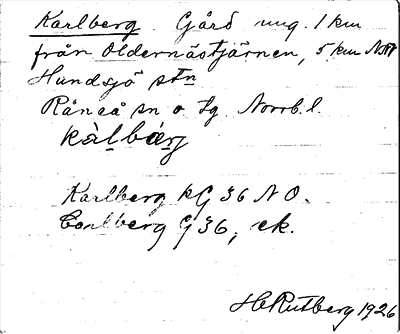 Karlberg. Gård ung. 1 km
från Oldernästjärnen, 5 km NNV
Hundsjö stn
Råneå sn o. tg. Norrb. l.
kàlbærj
Karlberg kG 36 N O.
Carlberg G 36, ek.
HCRutberg 1926